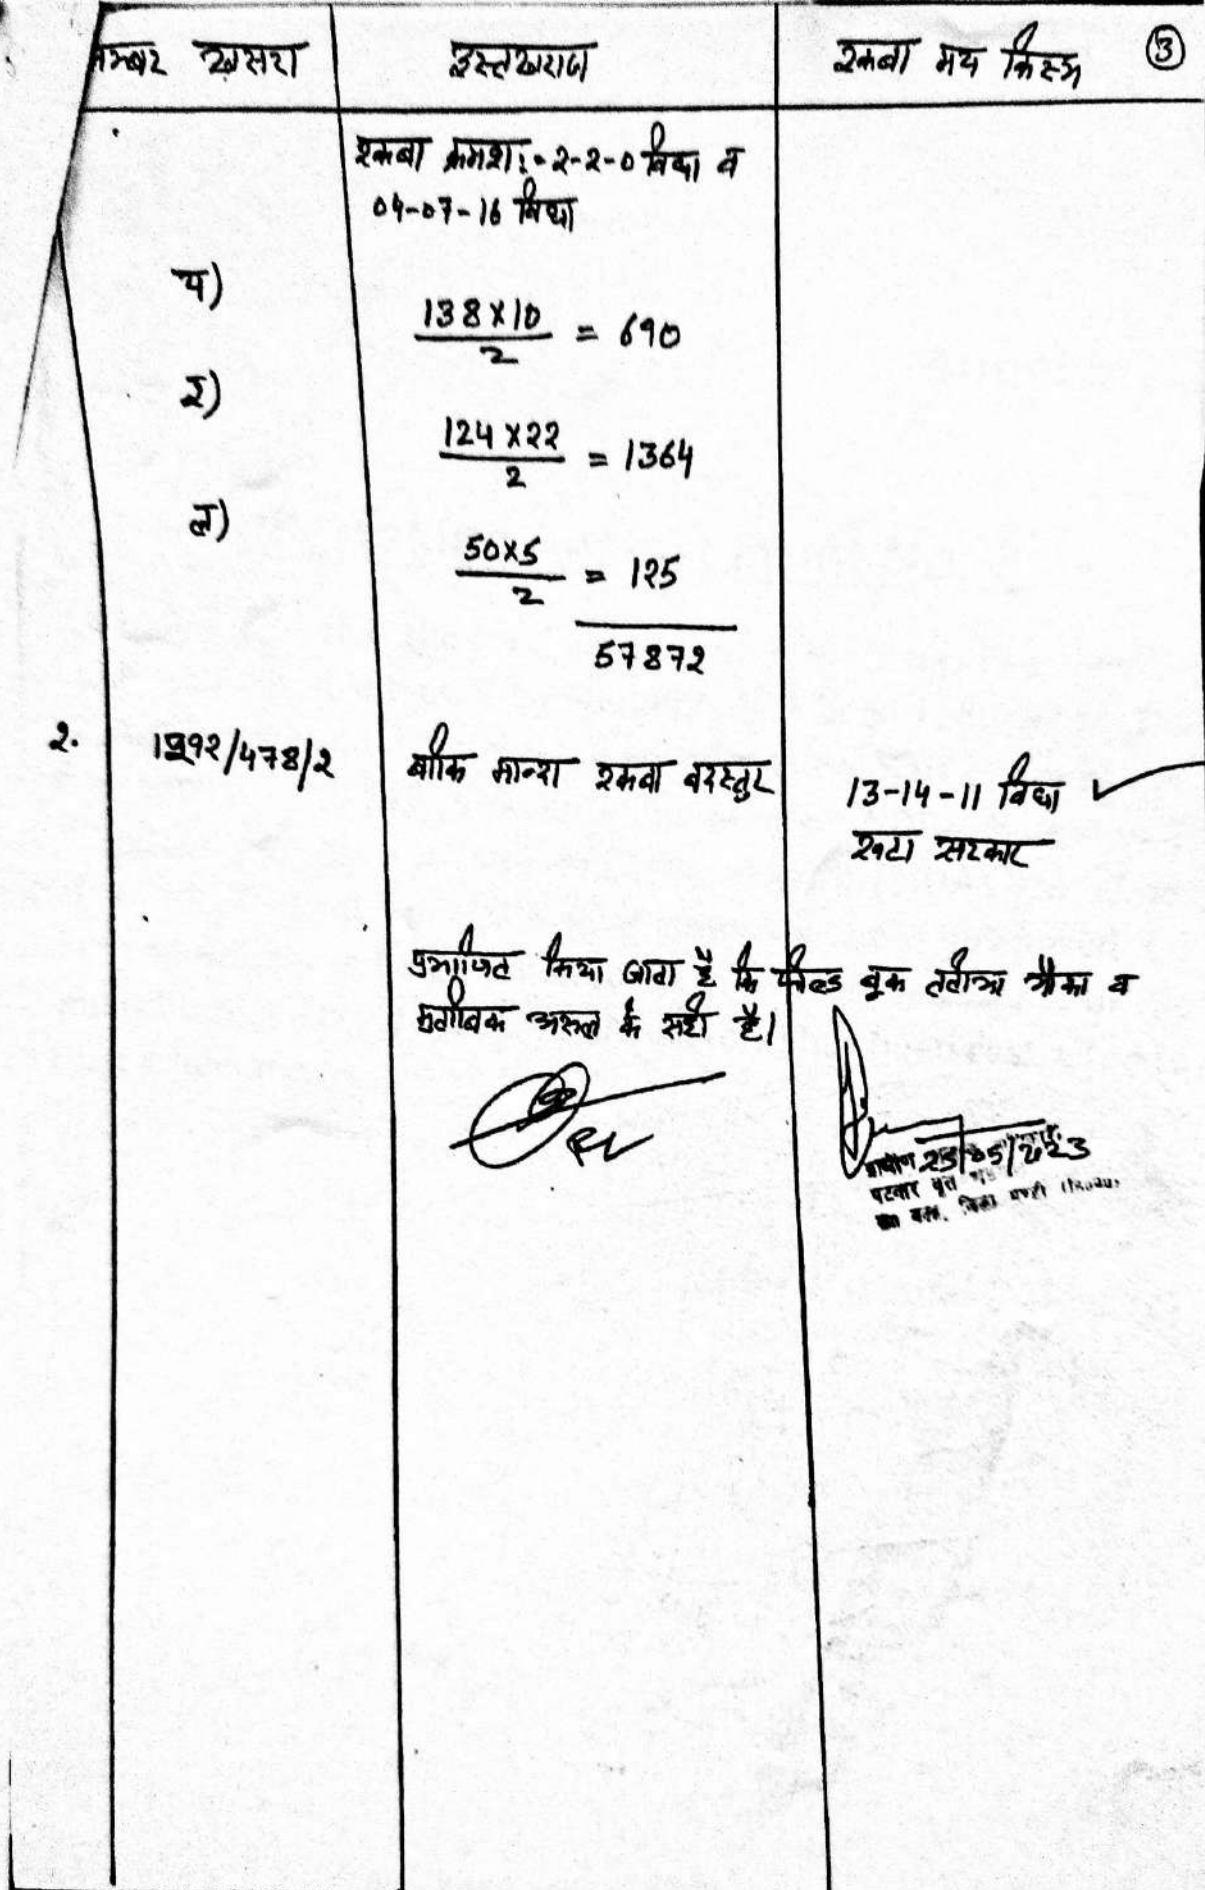 नम्बर खसरा इस्तखराज रकबा मय किस्म ③
रकबा क्रमश:- 2-2-0 बिघा व
04-07-16 बिघा
य) 138×10 / 2 = 690
र) 124×22 / 2 = 1364
ल) 50×5 / 2 = 125
57872
2. 1292/478/2 बाकि मान्दा रकबा बदस्तुर 13-14-11 बिघा ✓
सरकार
प्रमाणित किया जाता है कि फील्ड बूक ततीमा मौका व
मुताबिक असल के सही है।
25/05/2023
ग्रामीण
पटवार वृत
जिला मण्डी